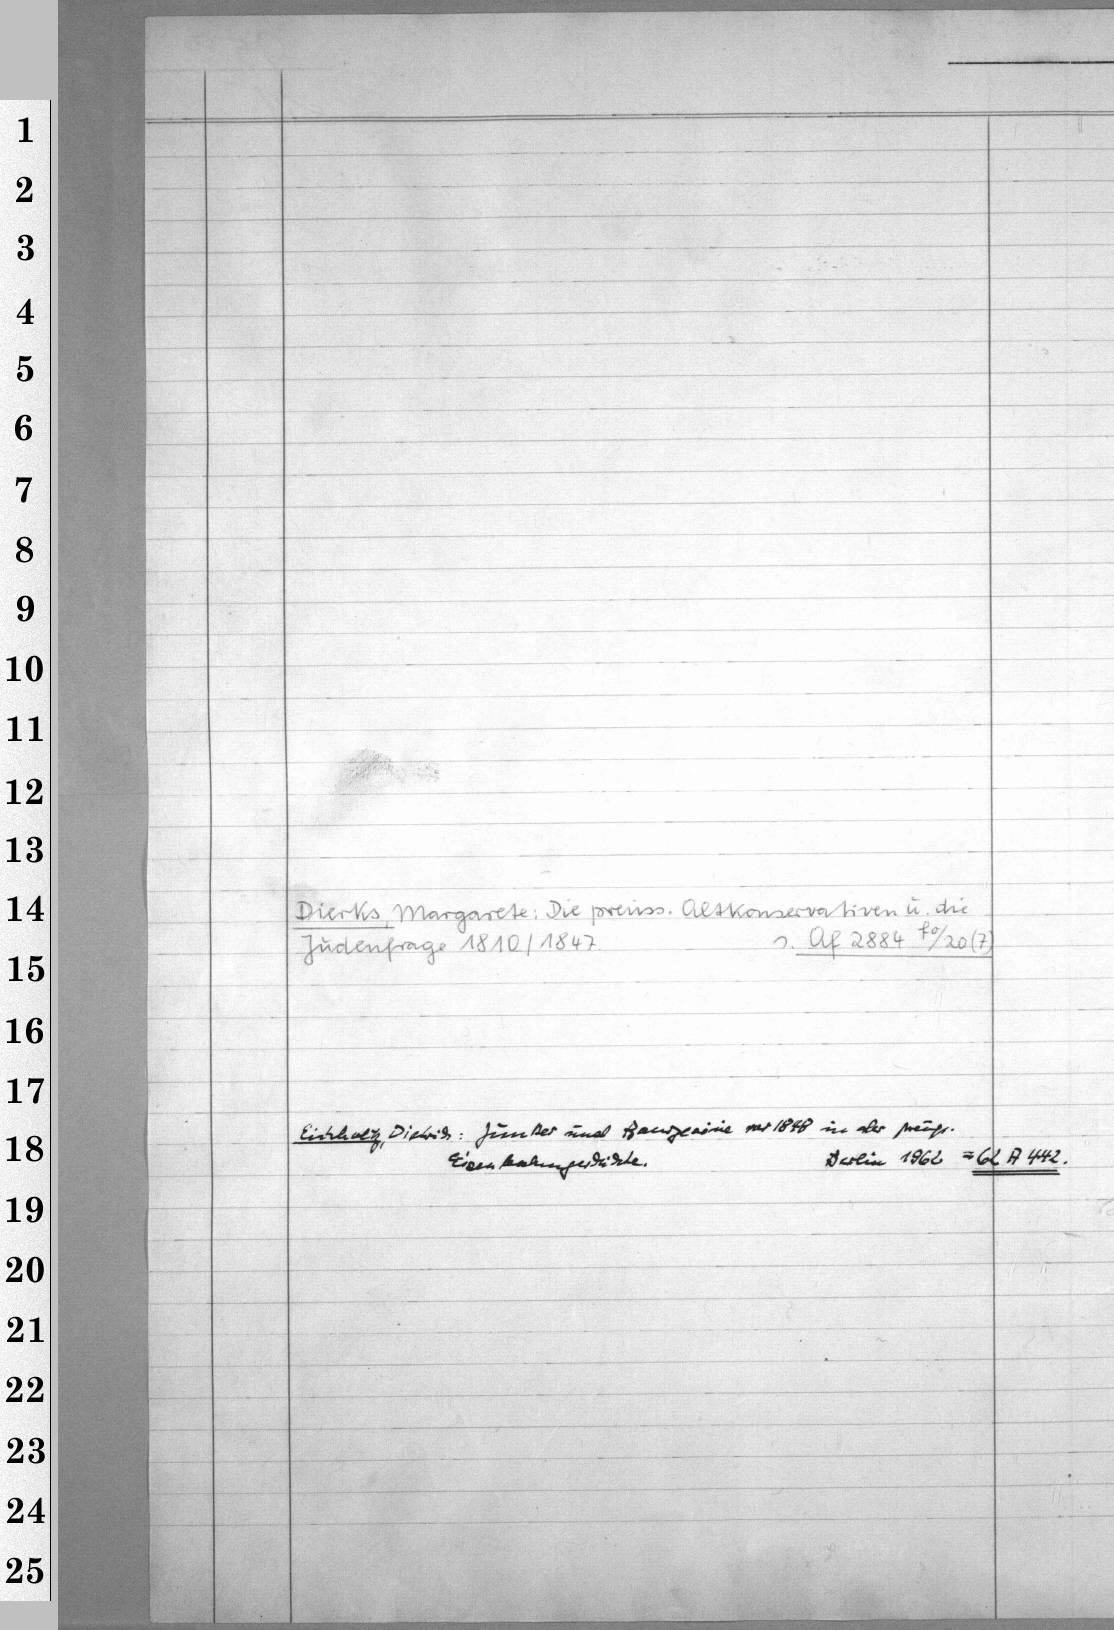 1
2
3
4
5
6
7
8
9
10
11
12
13
14
Dierks, Margarete: Die preuss. Altkonservativen u. die
Judenfrage 1810/1847. s. Af 2884 fo/20(7)
15
16
17
18
Eichholtz, Dietrich: Junker und Bourgeoisie vor 1848 in der preuß.
Eisenbahngeschichte. Berlin 1962 = 62 A 442.
19
20
21
22
23
24
25